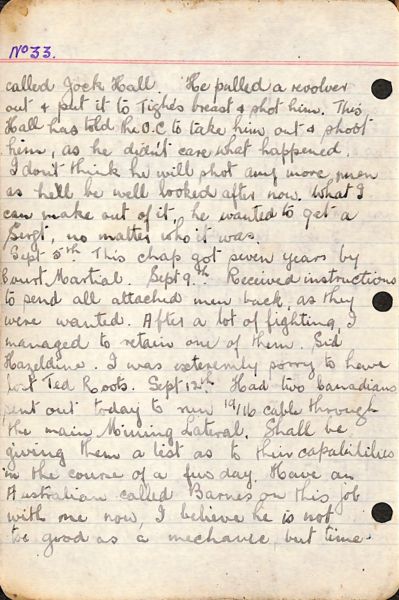 No 33.
called Jock Hall. He pulled a revolver
out & put it to Tighes breast & shot him. This
Hall has told the O.C. to take him out & shoot
him, as he didn't care what happened.
I dont think he will shot any more men
as he'll be well looked after now. What I
can make out of it, he wanted to get a
Sergt, no matter who it was.
Sept 5th This chap got seven years by
Court Martial. Sept 9th. Received instructions
to send all attached men back, as they
were wanted. After a lot of fighting, I
managed to retain one of them. Sid
Hazeldine. I was exteremly sorry to have
lost Ted Roots. Sept 12th Had two Canadians
sent out today to run 19/16 cable through
the main Mining Lateral. Shall be
giving them a test as to their capabilities
in the course of a few day. Have an
Australian called Barnes on this job
with me now, I believe he is not
to good as a mechanic, but time